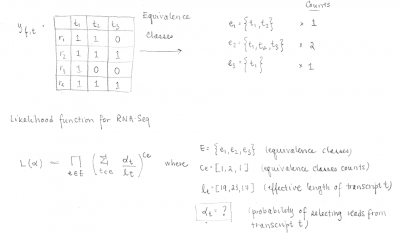 Counts
y_{f,t} =
t₁ t₂ t₃
r₁ 1 1 0
r₂ 1 1 1
r₃ 1 0 0
r₄ 1 1 1
Equivalence
Classes
e₁ = {t₁, t₂} × 1
e₂ = {t₁, t₂, t₃} × 2
e₃ = {t₁} × 1
Likelihood function for RNA-Seq
L(α) = ∏_{e∈E} (∑_{t∈e} α_t / l_t)^{c_e} where
E = {e₁, e₂, e₃} (equivalence classes)
Ce = [1, 2, 1] (equivalence classes counts)
l_t = [19, 23, 17] (effective length of transcript t)
α_t = ? (probability of selecting reads from
transcript t)